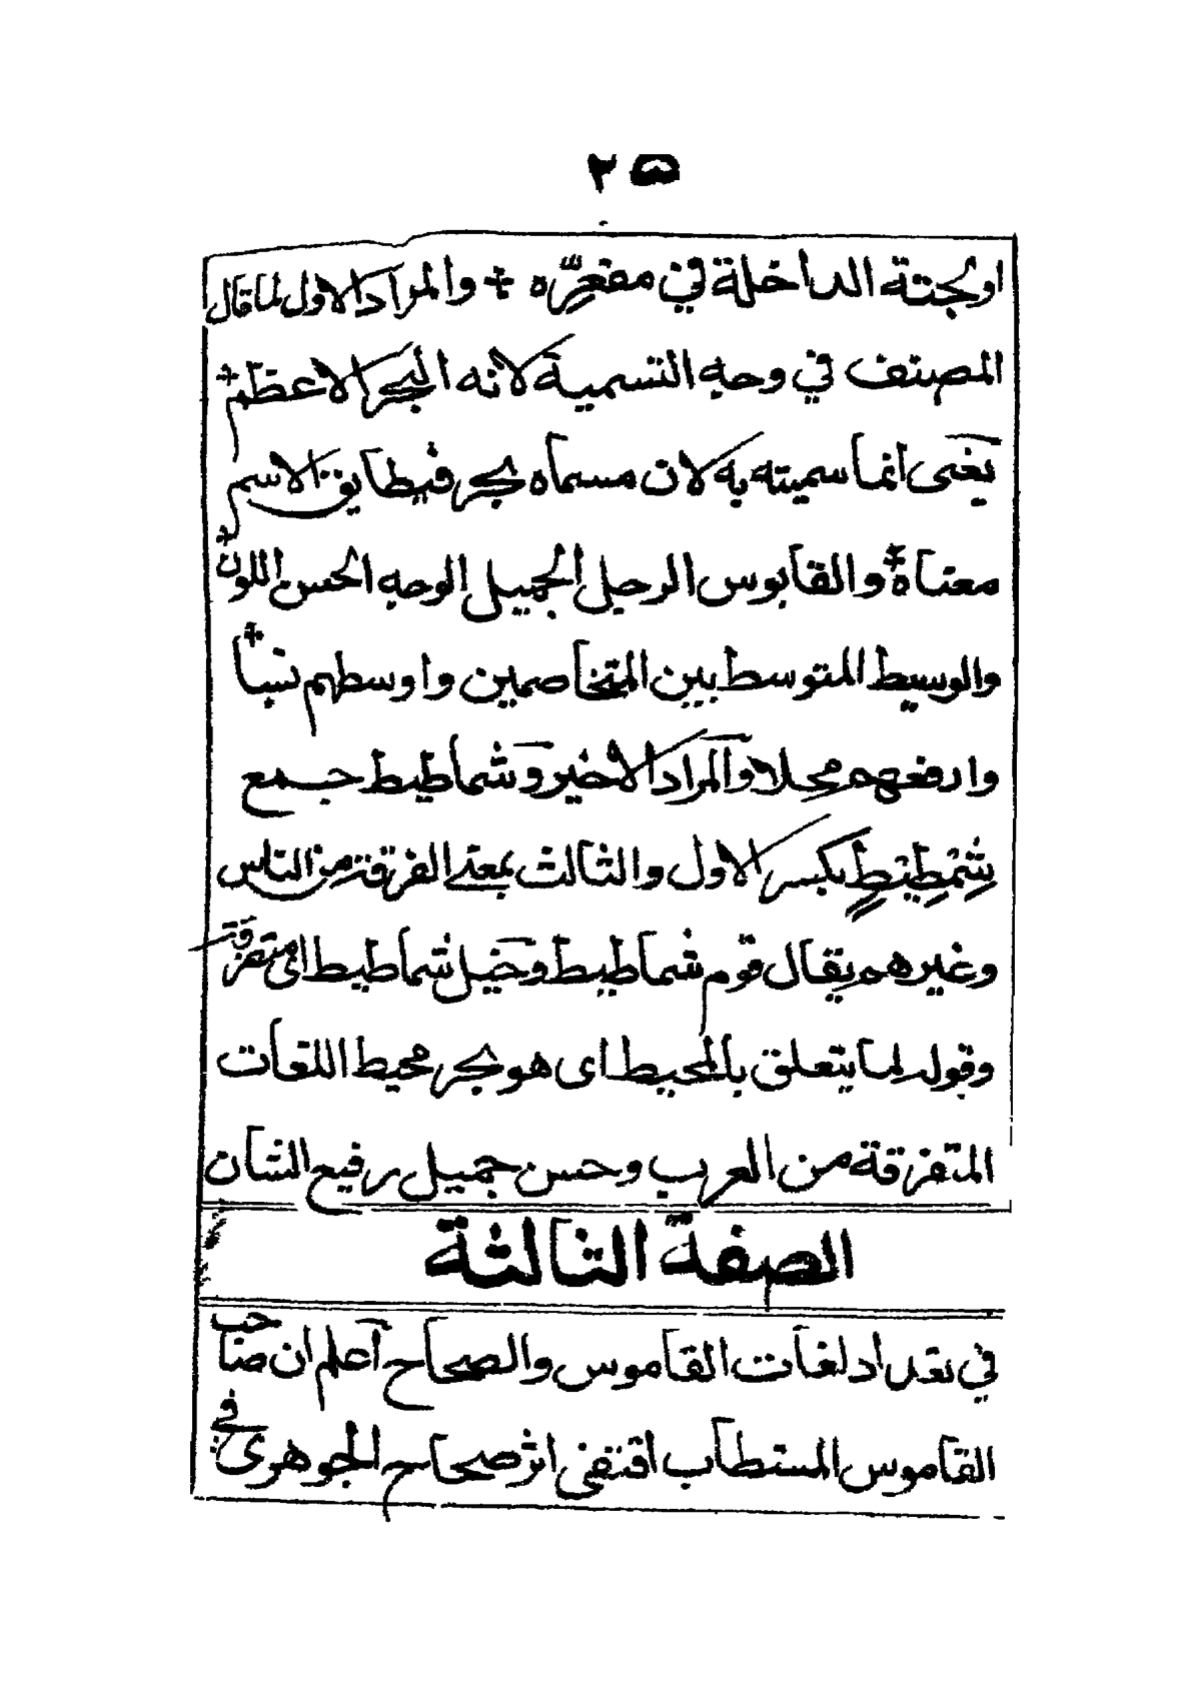 ٢٥
او لجته الداخلة في مقعره + والمراد الاول لما قال
المصنف في وجه التسمية لانه البحر الاعظم +
يعنى انما سميته به لان مسماه بحر فيطابق الاسم
معناه + والقابوس الرجل الجميل الوجه الحسن اللون +
والوسيط المتوسط بين المتخاصمين واوسطهم نسبا +
وارفعهم محلا والمراد الاخير وشماطيط جمع
شِمْطِيْطٍ بكسر الاول والثالث بمعنى الفرقة من الناس
وغيرهم يقال قوم شماطيط وخيل شماطيط اى متفرقة
وقوله لما يتعلق بالمحيط اى هو بحر محيط اللغات
المتفرقة من العرب وحسن جميل رفيع الشان
الصفة الثالثة
في تعداد لغات القاموس والصحاح آعلم ان صاحب
القاموس المستطاب اقتفى اثر صحاح الجوهرى في